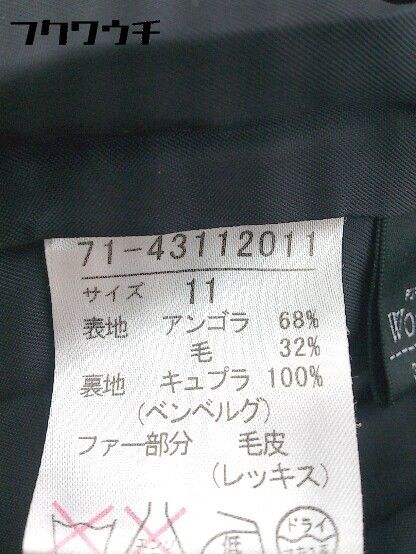 フクワウチ
71-43112011
サイズ 11
表地 アンゴラ 68%
毛 32%
裏地 キュプラ 100%
(ベンベルグ)
ファー部分 毛皮
(レッキス)
低
ドライ